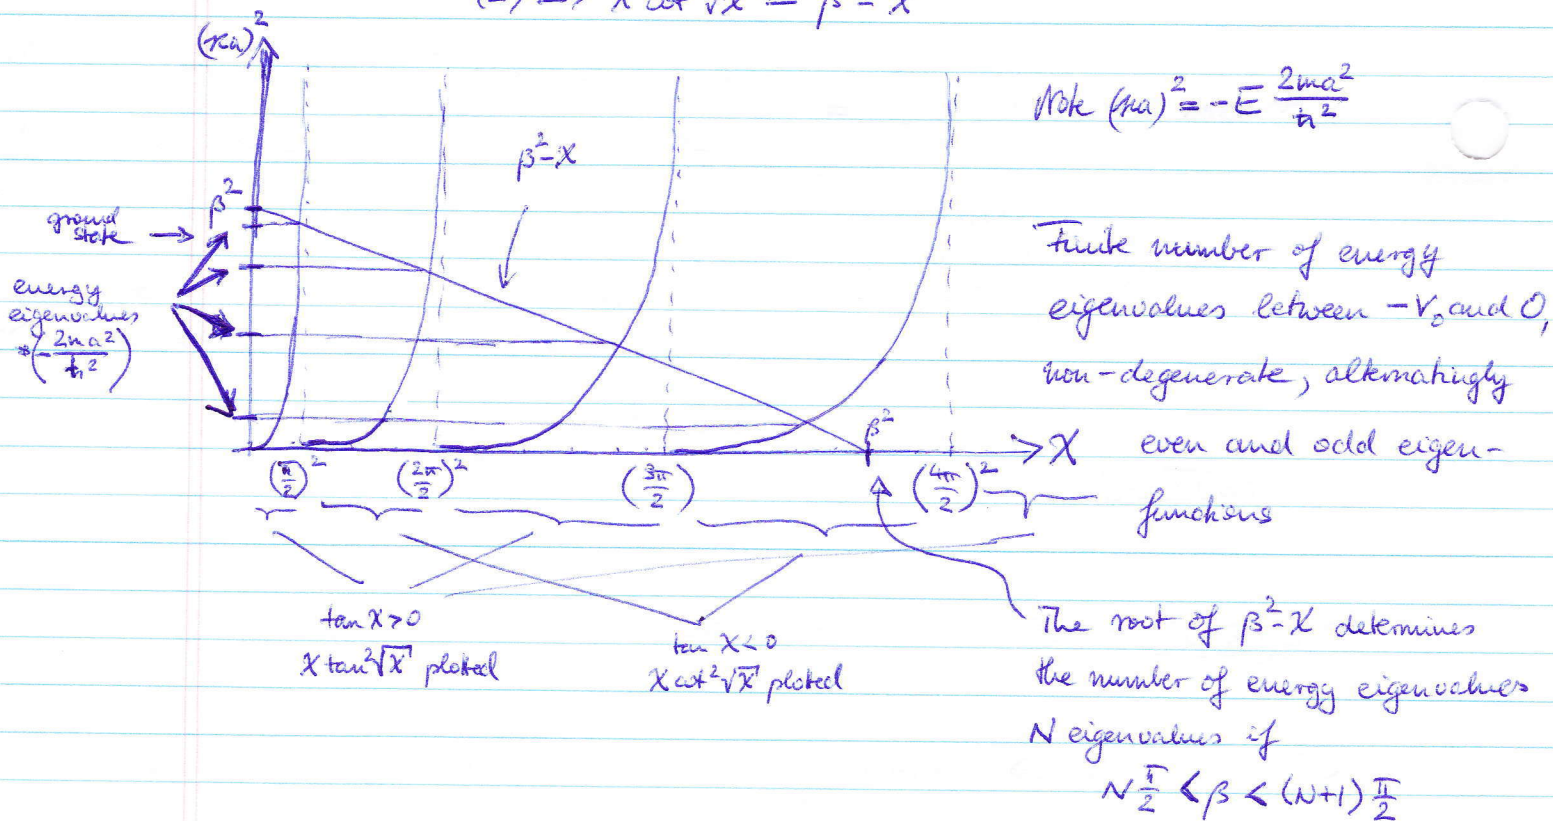 χ cot² √χ = β² - χ
(κa)²
Note (κa)² = -E 2ma²/ħ²
β² - χ
β²
ground
state →
energy
eigenvalues
*(-2ma²/ħ²)
Finite number of energy
eigenvalues between -V₀ and 0,
non-degenerate, alternatingly
even and odd eigen-
functions
β²
χ
(π/2)²
(2π/2)²
(3π/2)
(4π/2)²
tan χ > 0
χ tan² √χ ploted
tan χ < 0
χ cot² √χ ploted
The root of β² - χ determines
the number of energy eigenvalues
N eigenvalues if
N π/2 < β < (N+1) π/2